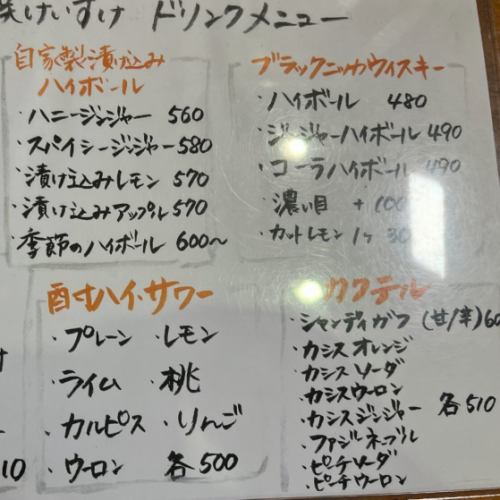 けいすけ ドリンクメニュー
自家製漬け込み
ハイボール
・ハニージンジャー 560
・スパイシージンジャー 580
・漬け込みレモン 570
・漬け込みアップル 570
・季節のハイボール 600〜
ブラックニッカウィスキー
・ハイボール 480
・ジンジャーハイボール 490
・コーラハイボール 490
・濃い目 +100
・カットレモン 1ヶ 30
酎ハイ・サワー
・プレーン ・レモン
・ライム ・桃
・カルピス ・りんご
・ウーロン 各500
カクテル
・シャンディガフ (甘/辛) 60
・カシスオレンジ
・カシスソーダ
・カシスウーロン
・カシスジンジャー 各510
・ファジーネーブル
・ピーチソーダ
・ピーチウーロン
10